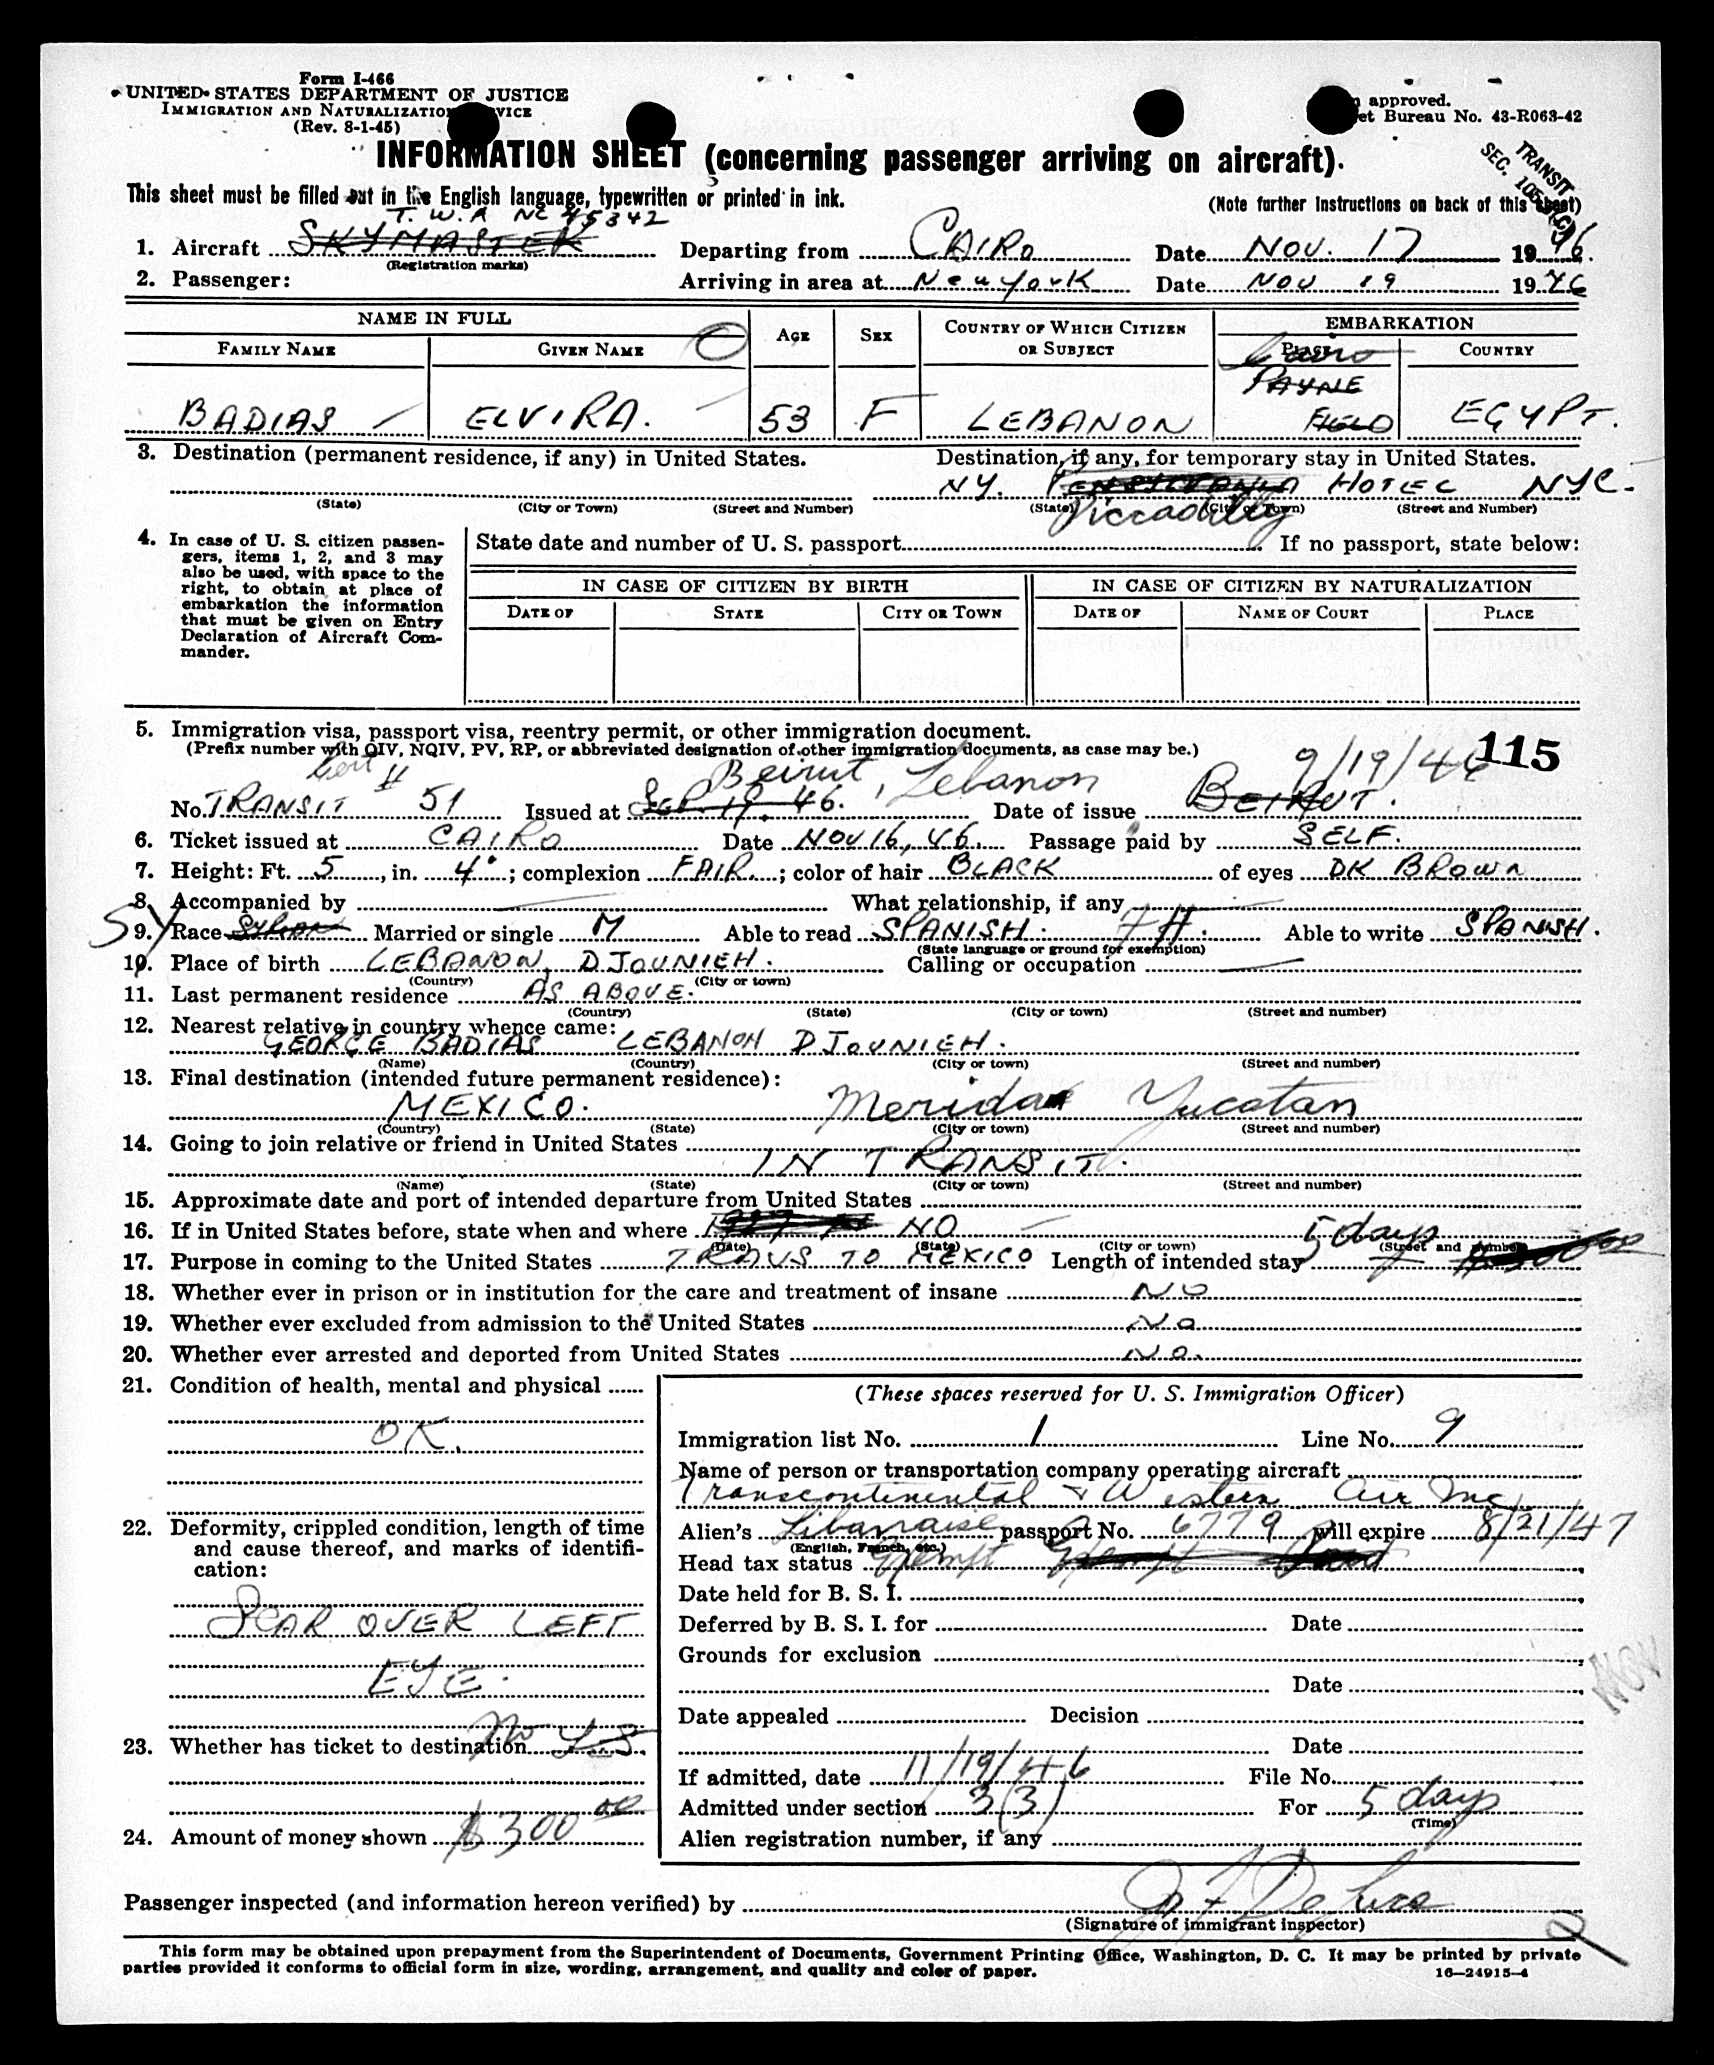 Form I-466
UNITED STATES DEPARTMENT OF JUSTICE
IMMIGRATION AND NATURALIZATION SERVICE
(Rev. 8-1-45)
approved.
et Bureau No. 43-R063-42
TRANSIT
SEC.
INFORMATION SHEET (concerning passenger arriving on aircraft).
This sheet must be filled out in the English language, typewritten or printed in ink.
(Note further instructions on back of this sheet)
T. W. A NC 45342
1. Aircraft SKYMASTER Departing from CAIRO Date NOV. 17 1946.
(Registration marks)
2. Passenger: Arriving in area at New York Date NOV 19 1946
NAME IN FULL AGE SEX COUNTRY OF WHICH CITIZEN OR SUBJECT EMBARKATION
FAMILY NAME GIVEN NAME PLACE COUNTRY
Cairo
PAYNE
BADIAS ELVIRA. 53 F LEBANON FIELD EGYPT.
3. Destination (permanent residence, if any) in United States. Destination, if any, for temporary stay in United States.
NY. PENSYLVANIA HOTEL NYC.
(State) (City or Town) (Street and Number) (State) (City or Town) (Street and Number)
Piccadilly
4. In case of U. S. citizen passengers, items 1, 2, and 3 may also be used, with space to the right, to obtain at place of embarkation the information that must be given on Entry Declaration of Aircraft Commander.
State date and number of U. S. passport If no passport, state below:
IN CASE OF CITIZEN BY BIRTH IN CASE OF CITIZEN BY NATURALIZATION
DATE OF STATE CITY OR TOWN DATE OF NAME OF COURT PLACE
5. Immigration visa, passport visa, reentry permit, or other immigration document.
(Prefix number with QIV, NQIV, PV, RP, or abbreviated designation of other immigration documents, as case may be.)
115
Cert # Beirut, Lebanon 9/19/46
No. TRANSIT 51 Issued at SEP. 19. 46. Date of issue BEIRUT.
6. Ticket issued at CAIRO Date NOV 16, 46. Passage paid by SELF.
7. Height: Ft. 5, in. 4; complexion FAIR.; color of hair BLACK of eyes DK BROWN
8. Accompanied by What relationship, if any
SY
9. Race Syrian Married or single M Able to read SPANISH. Able to write SPANISH.
(State language or ground for exemption)
10. Place of birth LEBANON, DJOUNIEH. Calling or occupation
(Country) (City or town)
11. Last permanent residence AS ABOVE.
(Country) (State) (City or town) (Street and number)
12. Nearest relative in country whence came:
GEORGE BADIAS LEBANON DJOUNIEH.
(Name) (Country) (City or town) (Street and number)
13. Final destination (intended future permanent residence):
MEXICO. Merida Yucatan
(Country) (State) (City or town) (Street and number)
14. Going to join relative or friend in United States
IN TRANSIT.
(Name) (State) (City or town) (Street and number)
15. Approximate date and port of intended departure from United States
16. If in United States before, state when and where NO
(Date) (State) (City or town) (Street and number)
17. Purpose in coming to the United States TRANS TO MEXICO Length of intended stay 5 days
18. Whether ever in prison or in institution for the care and treatment of insane NO
19. Whether ever excluded from admission to the United States No
20. Whether ever arrested and deported from United States No.
21. Condition of health, mental and physical
OK.
22. Deformity, crippled condition, length of time and cause thereof, and marks of identification:
SCAR OVER LEFT
EYE.
23. Whether has ticket to destination No YES.
24. Amount of money shown $300 00
(These spaces reserved for U. S. Immigration Officer)
Immigration list No. 1 Line No. 9
Name of person or transportation company operating aircraft
Transcontinental & Western Air Inc
Alien's Libanaise passport No. 6779 will expire 8/21/47
(English, French, etc.)
Head tax status Exempt Exempt
Date held for B. S. I.
Deferred by B. S. I. for Date
Grounds for exclusion
Date
Date appealed Decision
Date
If admitted, date 11/19/46 File No.
Admitted under section 3(3) For 5 days
(Time)
Alien registration number, if any
NOV
Passenger inspected (and information hereon verified) by
(Signature of immigrant inspector)
This form may be obtained upon prepayment from the Superintendent of Documents, Government Printing Office, Washington, D. C. It may be printed by private
parties provided it conforms to official form in size, wording, arrangement, and quality and color of paper.
16—24915-4